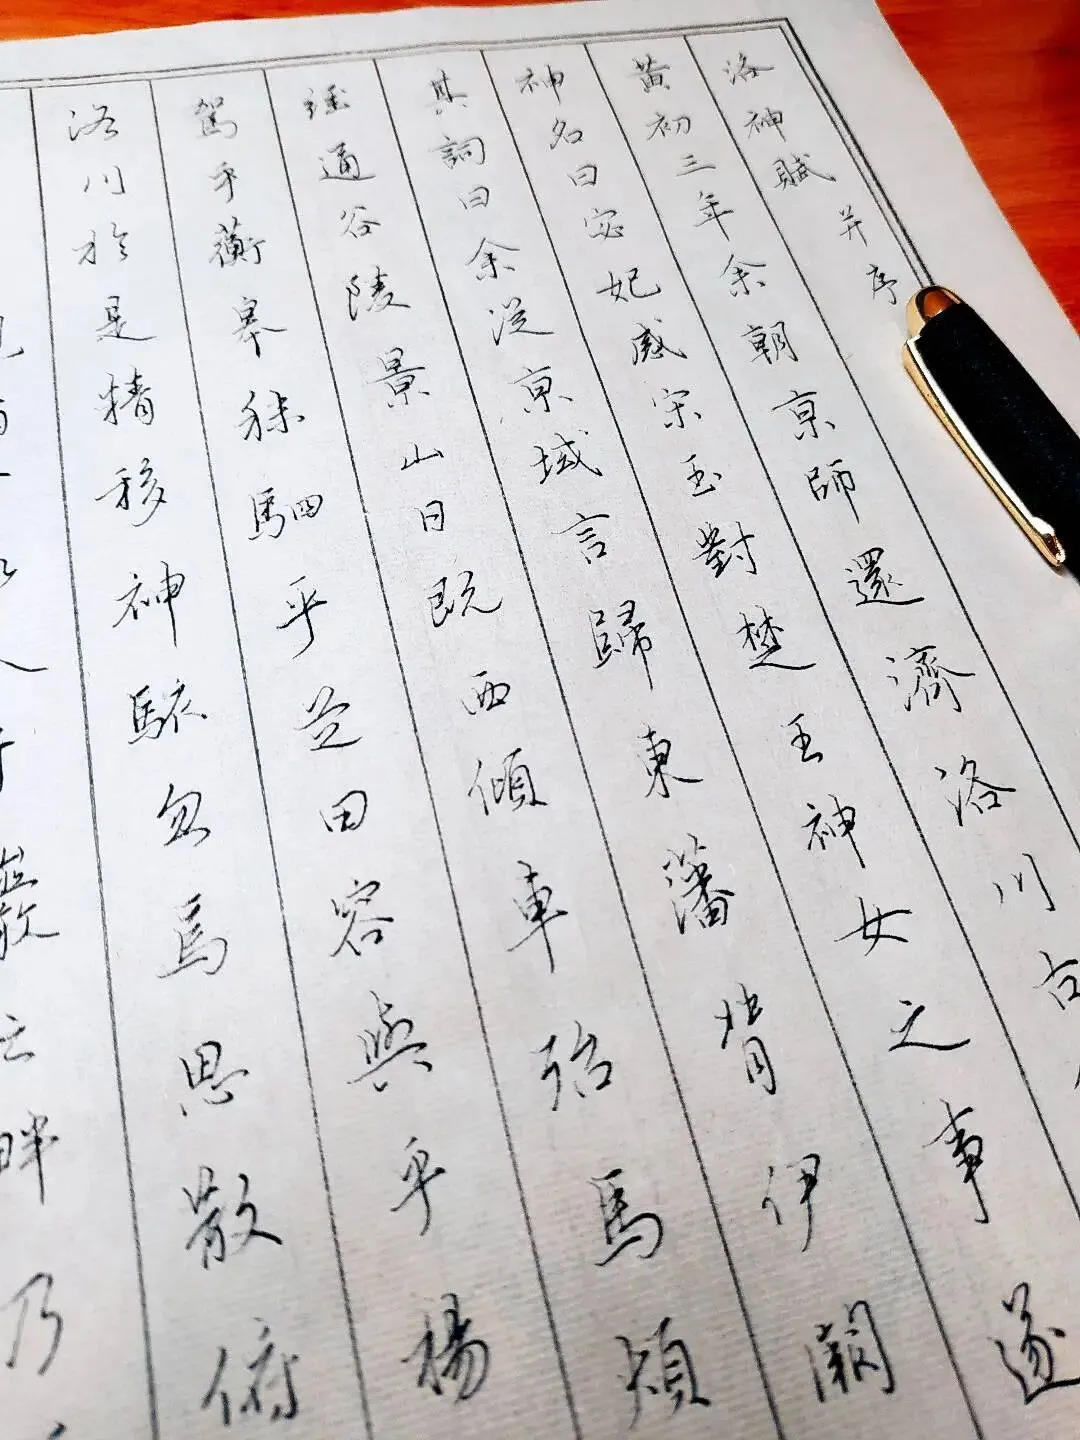 洛神賦 并序
黃初三年余朝京師還濟洛川古
神名曰宓妃感宋玉對楚王神女之事遂
其詞曰余從京域言歸東藩背伊闕
經通谷陵景山日既西傾車殆馬煩
駕乎蘅皋秣駟乎芝田容與乎楊
洛川於是精移神駭忽焉思散俯
人于巖之畔乃